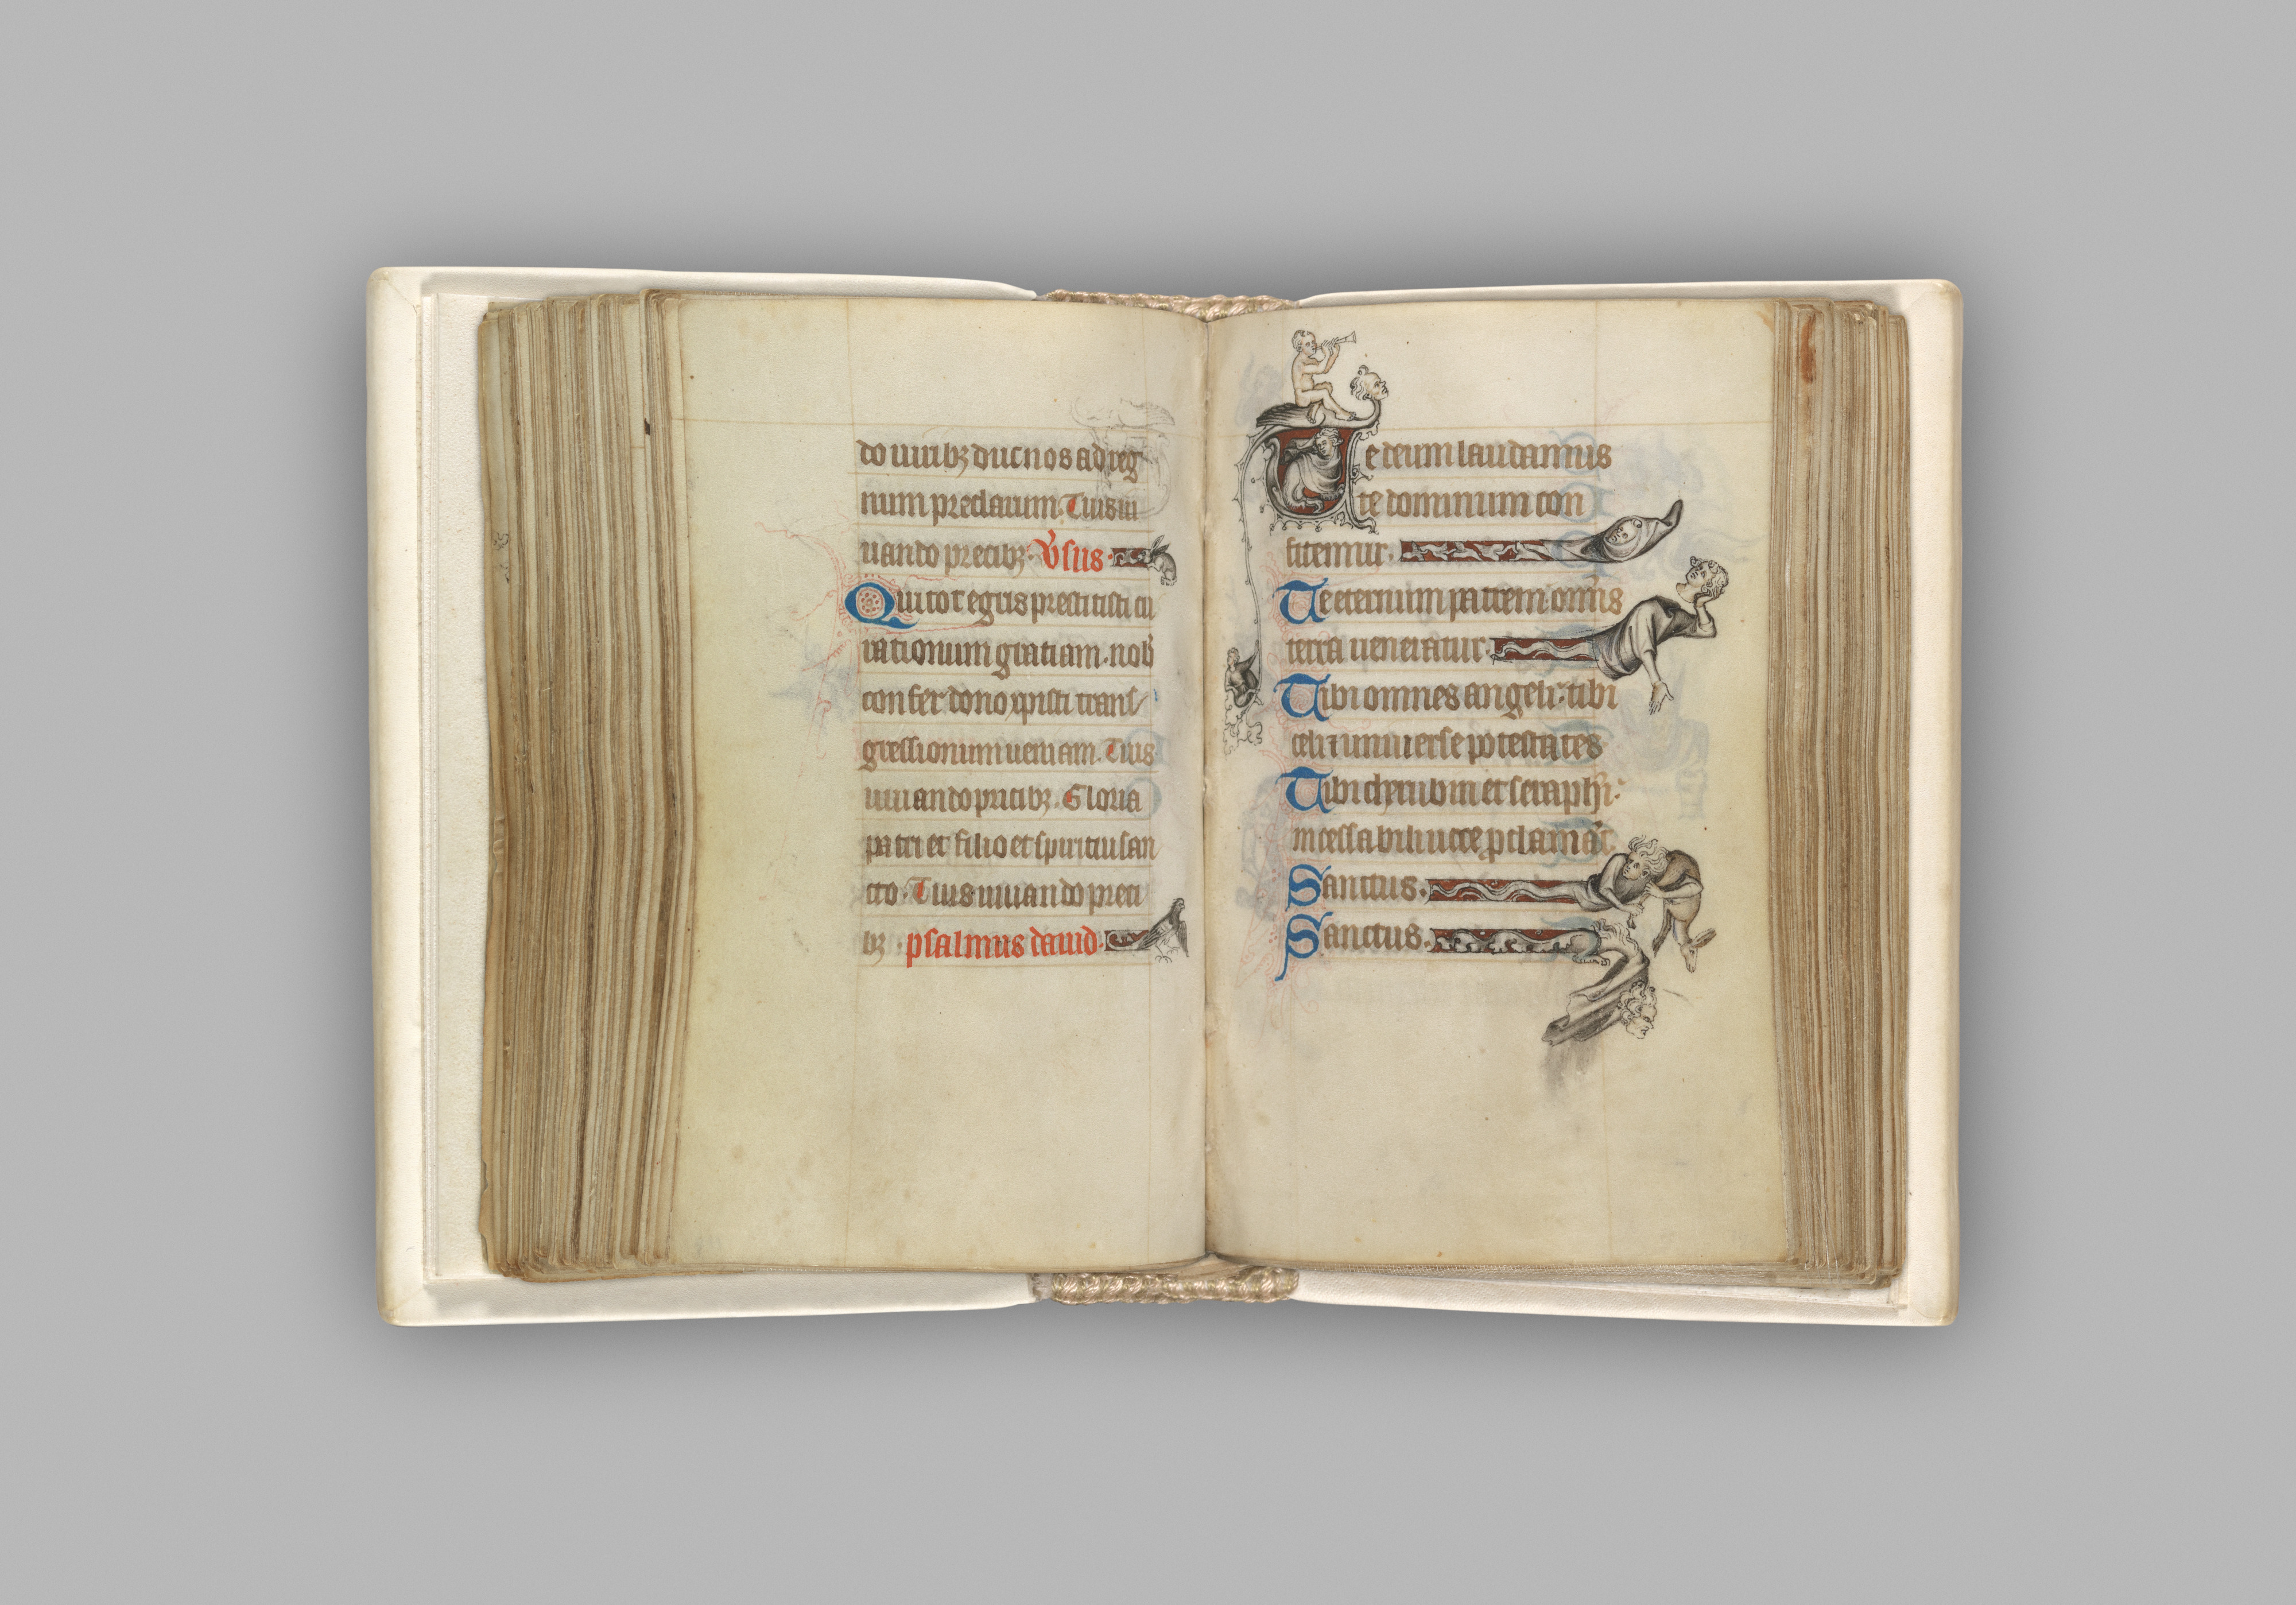 do uiribꝫ duc nos ad reg
num preclarum. Tuis iu
uando precibꝫ. Vsus.
Qui tot egris prestitisti cu
rationum gratiam. nob̄
confer dono xpisti trans
gressionum ueniam. Tuis
iuuando precibꝫ. Gloria
patri et filio et spiritui san
cto. Tuis iuuando preci
bꝫ. psalmus dauid.
Te deum laudamus
te dominum con
fitemur.
Te eternum patrem om̄is
terra ueneratur.
Tibi omnes angeli. tibi
celi ⁊ uniuerse potestates
Tibi cherubin et seraphī.
incessabili uoce ꝓclamāt.
Sanctus.
Sanctus.